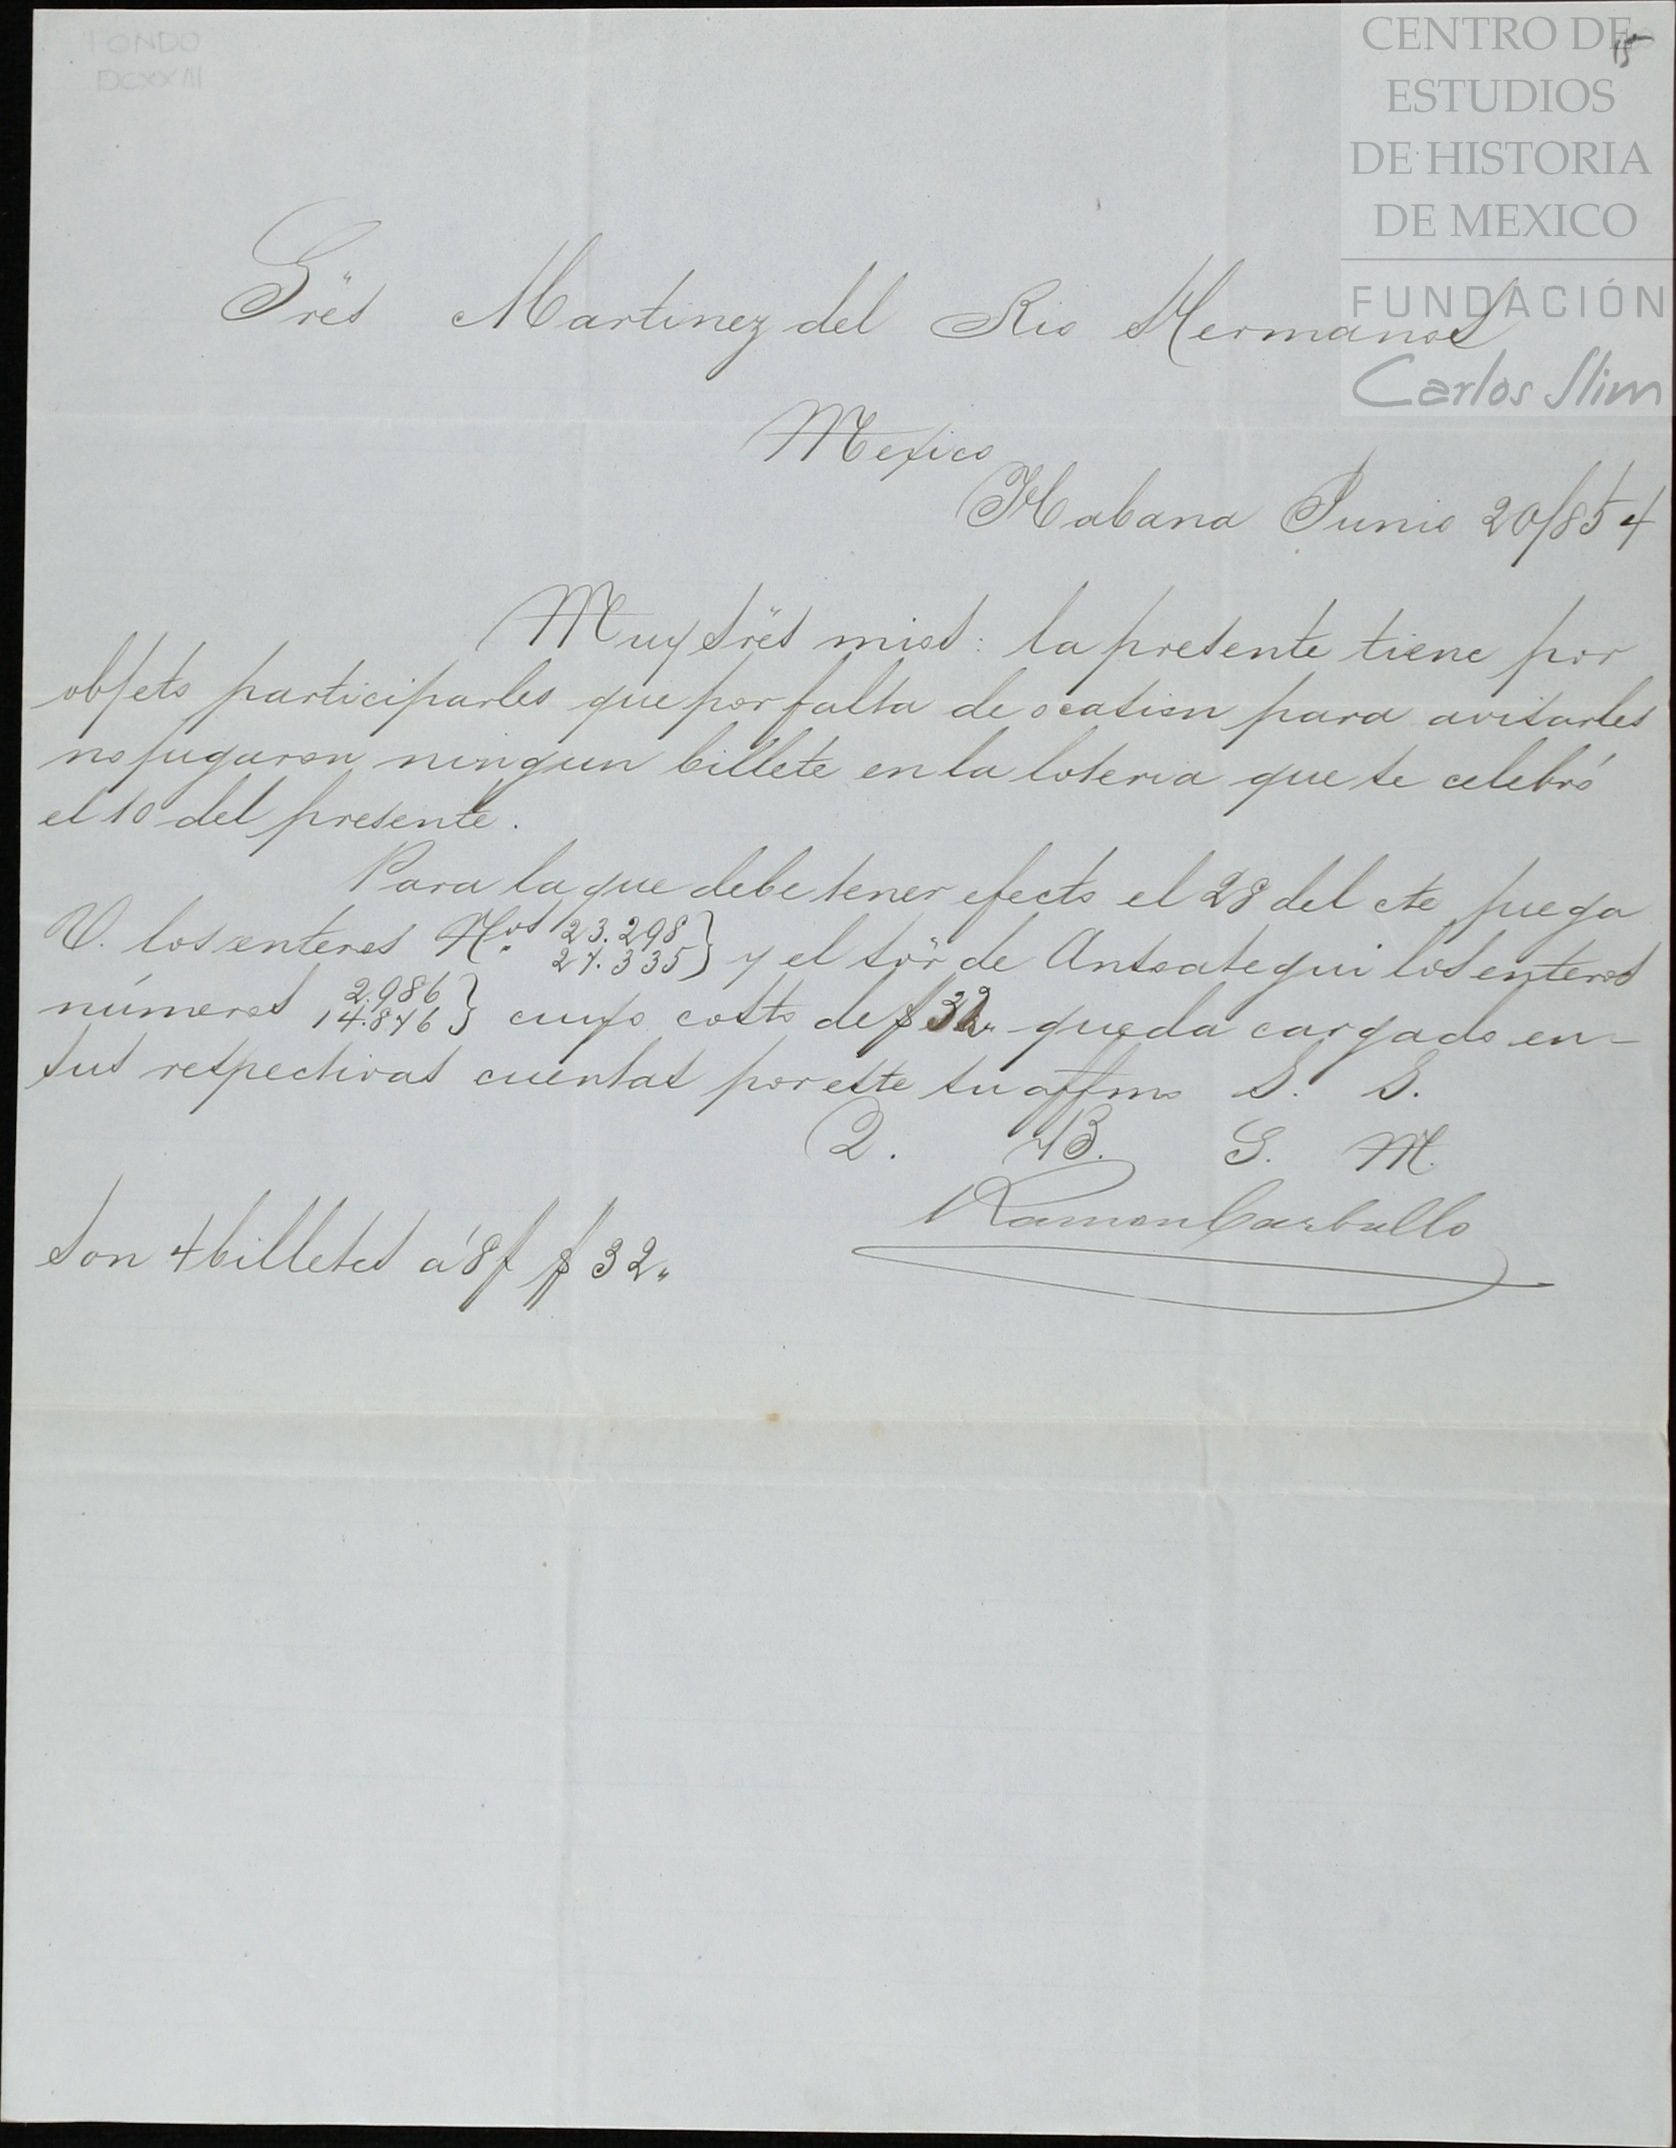 FONDO
DCXXIII
15
CENTRO DE
ESTUDIOS
DE HISTORIA
DE MEXICO
FUNDACIÓN
Carlos Slim
Sres Martinez del Rio Hermanos
Mexico
Habana Junio 20/854
Muy Sres mios: la presente tiene por
objeto participarles que por falta de ocasion para avisarles
no jugaron ningun billete en la loteria que se celebró
el 10 del presente.
Para la que debe tener efecto el 28 del cte juega
V. los enteros Nos 23.298
27.335 } y el sor de Ansoategui los enteros
números 2.986
14.876 } cuyo costo de $ 32" queda cargado en-
sus respectivas cuentas por este su affmo S. S.
Q. B. S. M.
Ramon Carballo
Son 4 billetes á 8$ $ 32"